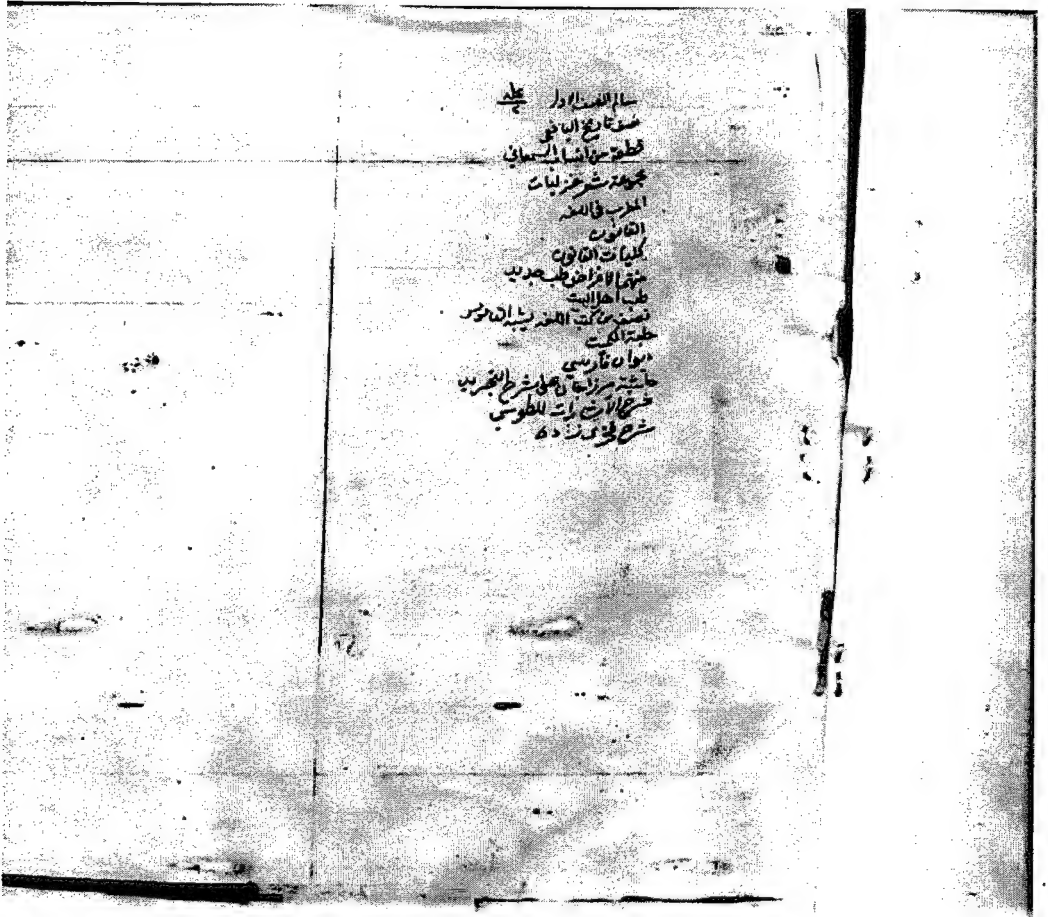 سالم النصف الاول
نصف تاريخ اليافعي
قطعة من انساب السمعاني
مجموعة شرح
المغرب في اللغه
القانون
كليات القانون
طب جديد
طب اهل البيت
نصف من كتب اللغه يشبه القاموس
حلبة الكميت
ديوان فارسي
حاشية ميرزا جان على شرح التجريد
شرح الاشارات للطوسي
شرح